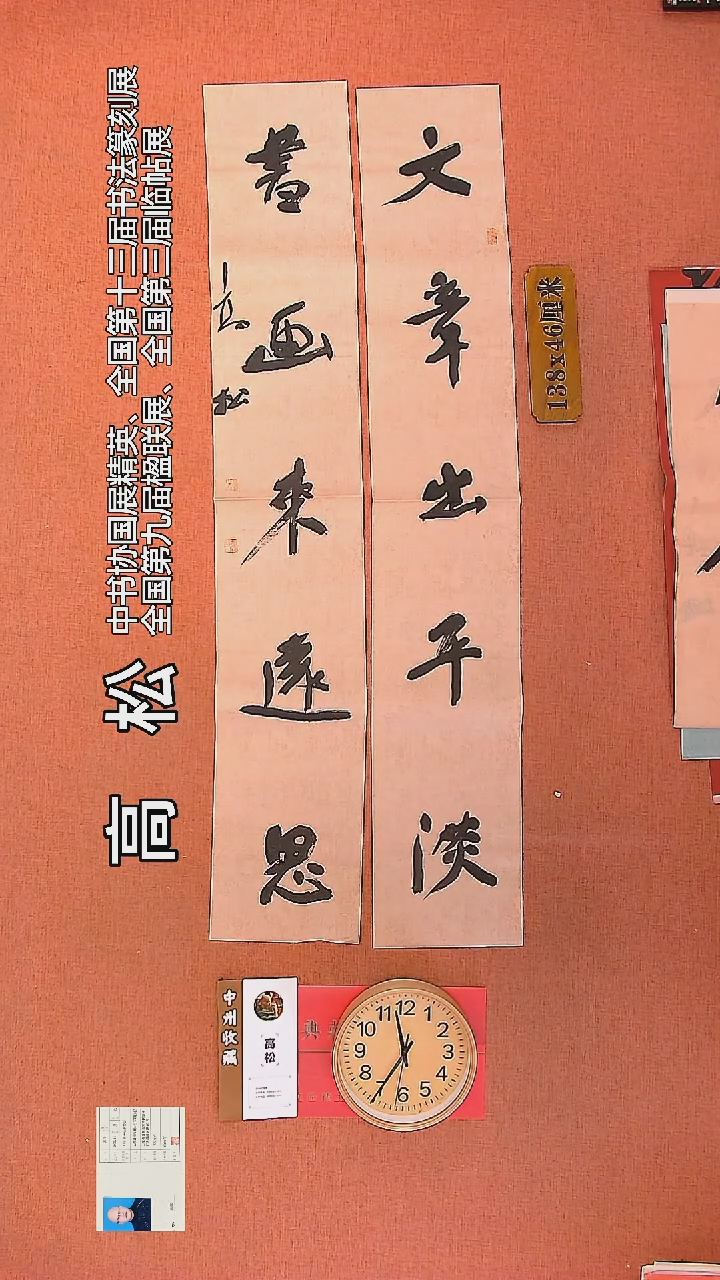 文章出平淡
書画来遠思
高松
138x46厘米
高 松
中书协国展精英、全国第十三届书法篆刻展
全国第九届楹联展、全国第三届临帖展
中州收藏
高松
典
12
1
2
3
4
5
6
7
8
9
10
11